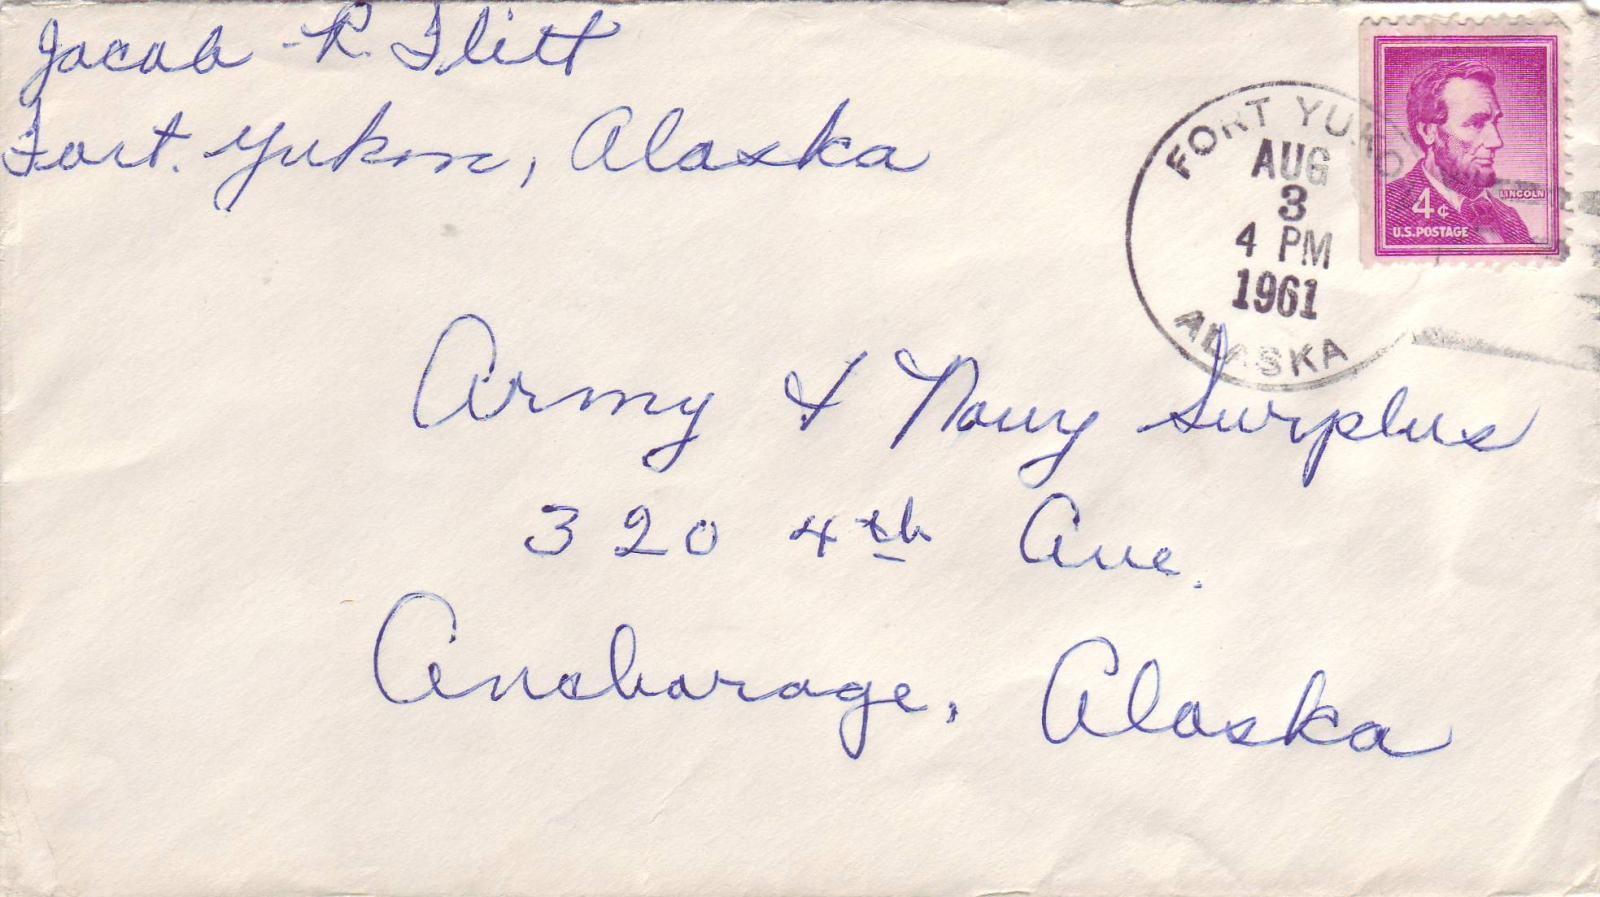 Jacob R. Flitt
Fort. Yukon, Alaska
FORT YUKON
AUG
3
4 PM
1961
ALASKA
LINCOLN
4¢
U.S. POSTAGE
Army & Navy Surplus
320 4th Ave.
Anchorage, Alaska